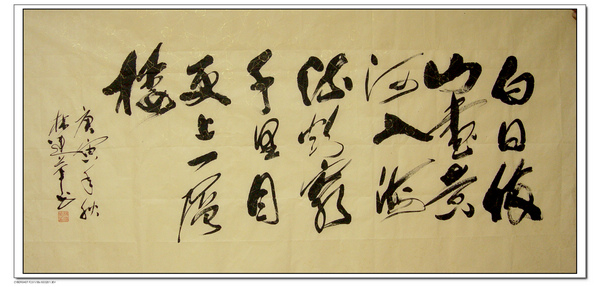 白日依
山盡黄
河入海
流欲窮
千里目
更上一層
楼
庚寅年秋